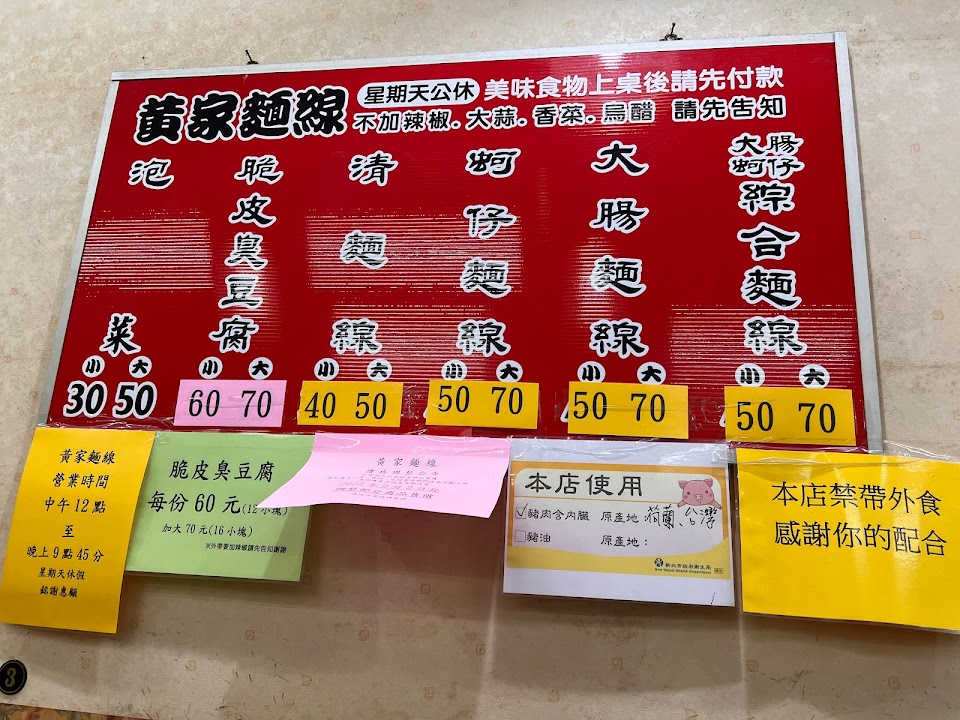 黃家麵線
星期天公休
美味食物上桌後請先付款
不加辣椒.大蒜.香菜.烏醋 請先告知
泡菜
小 大
30 50
脆皮臭豆腐
小 大
60 70
清麵線
小 大
40 50
蚵仔麵線
小 大
50 70
大腸麵線
小 大
50 70
大腸
蚵仔
綜合麵線
小 大
50 70
黃家麵線
營業時間
中午12點
至
晚上9點45分
星期天休假
銘謝惠顧
脆皮臭豆腐
每份60元(12小塊)
加大70元(16小塊)
※外帶要加辣椒請先告知謝謝
黃家麵線
本店使用
✓豬肉含內臟 原產地:荷蘭、台灣
豬油 原產地:
新北市政府衛生局
New Taipei Health Department
本店禁帶外食
感謝你的配合
3